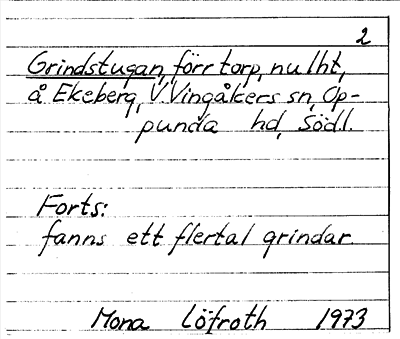 2
Grindstugan, förr torp, nu lht,
å Ekeberg, V. Vingåkers sn, Op-
punda hd, Södl.
Forts:
fanns ett flertal grindar.
Mona Löfroth 1973